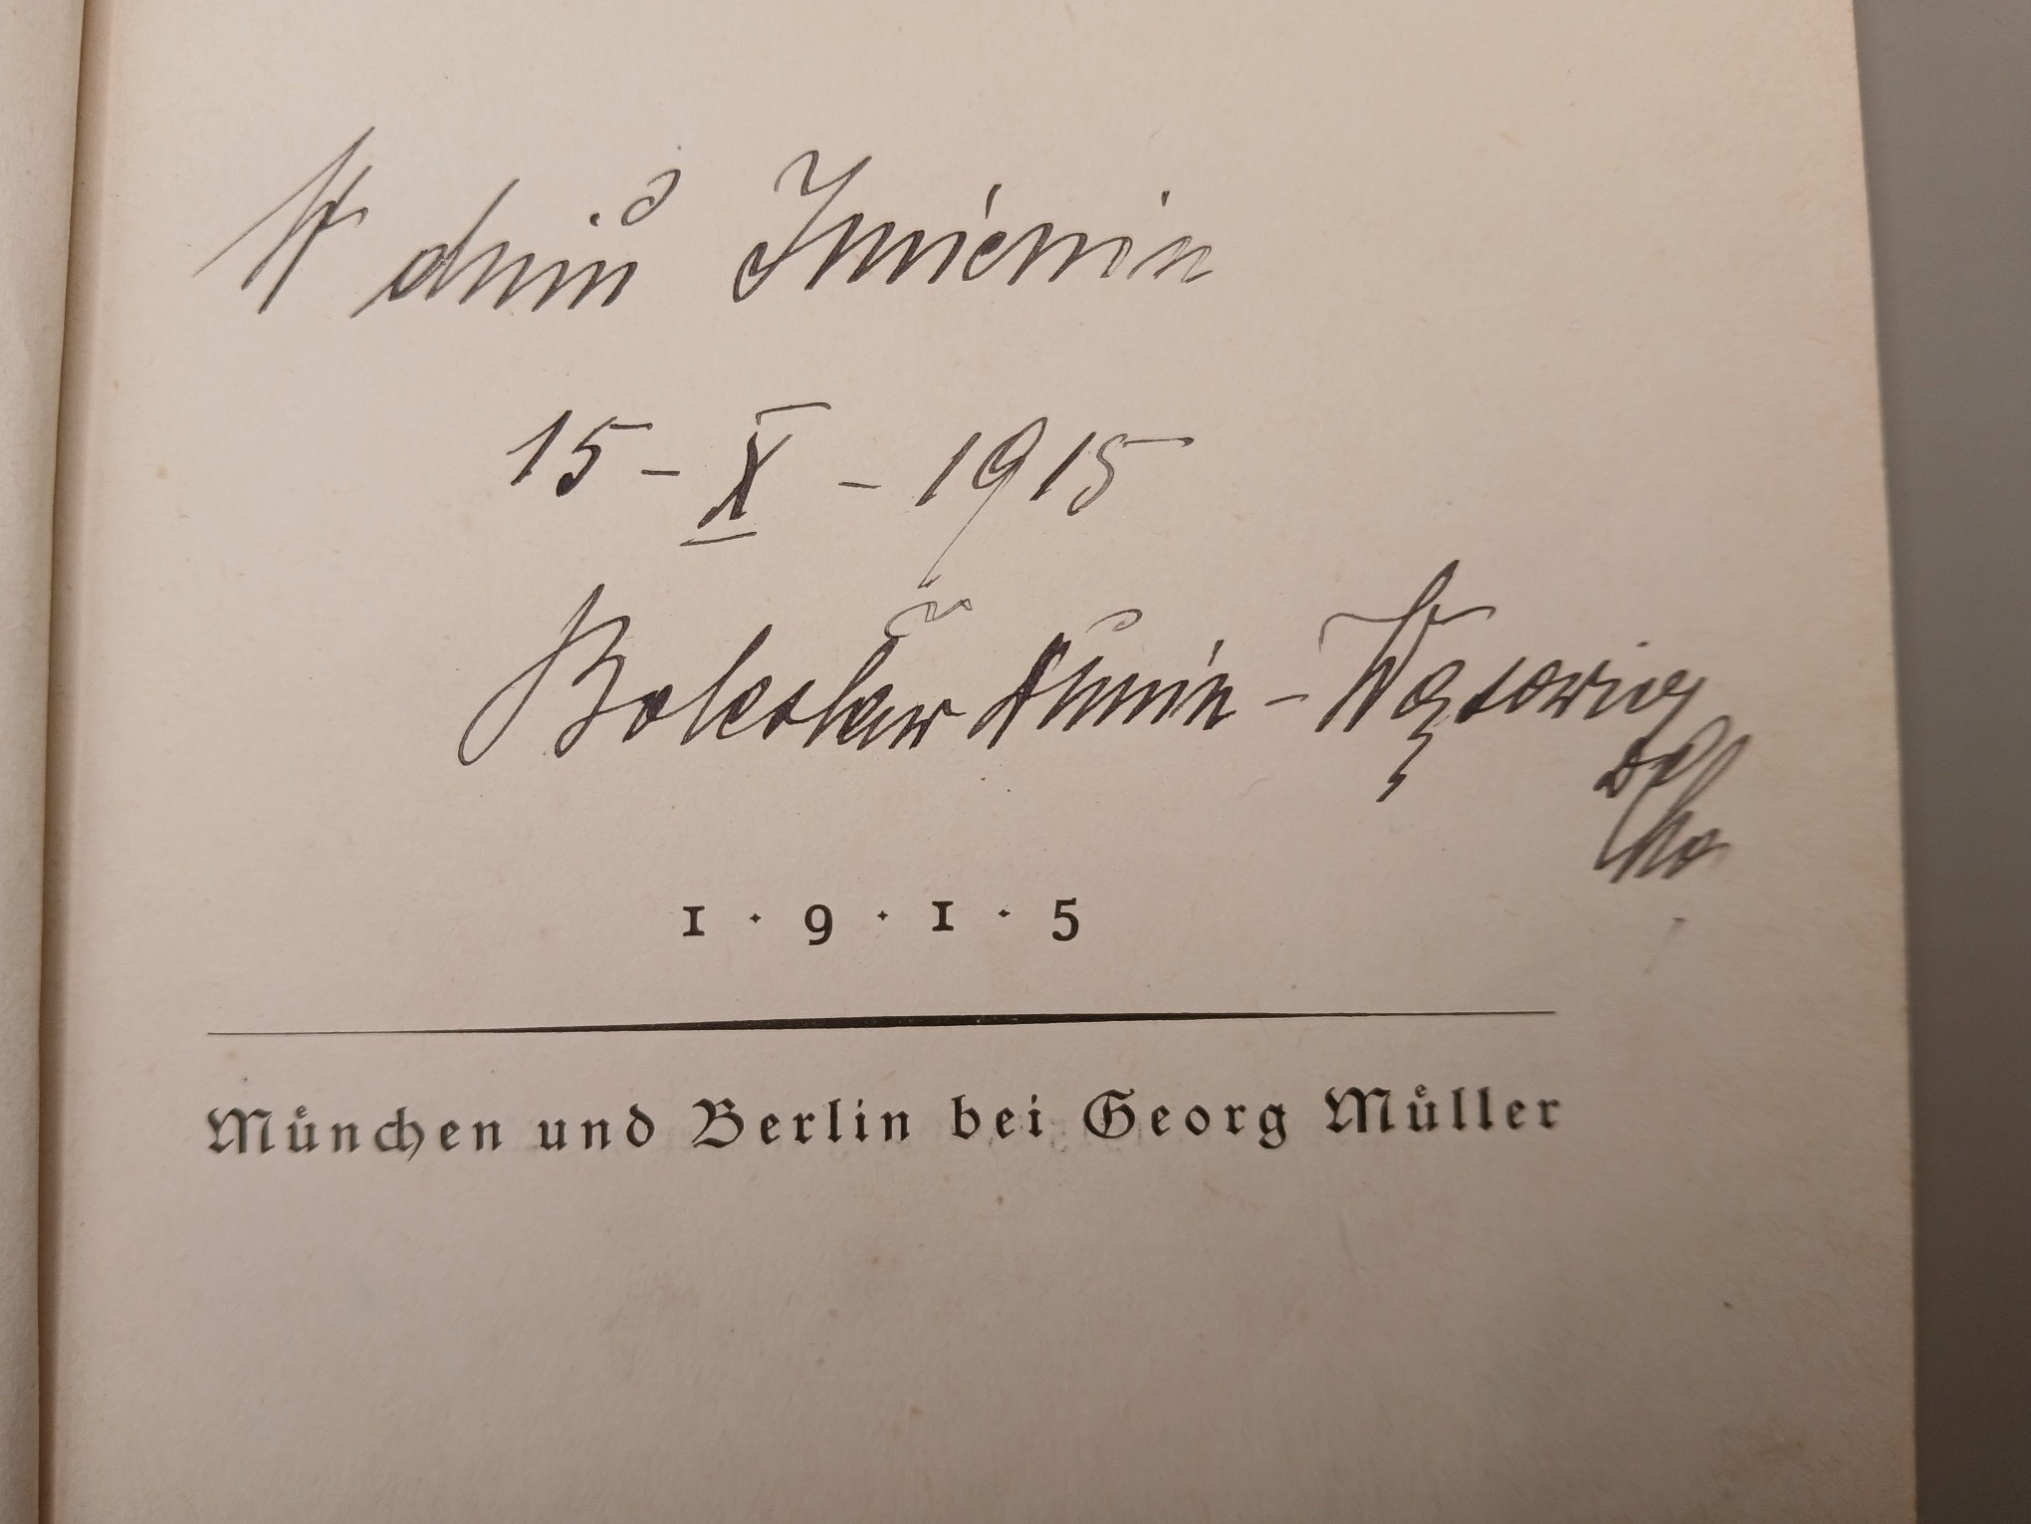 W dniu Imienin
15 - X - 1915
Bolesław Dunin - Wąsowicz
1 · 9 · 1 · 5
München und Berlin bei Georg Müller